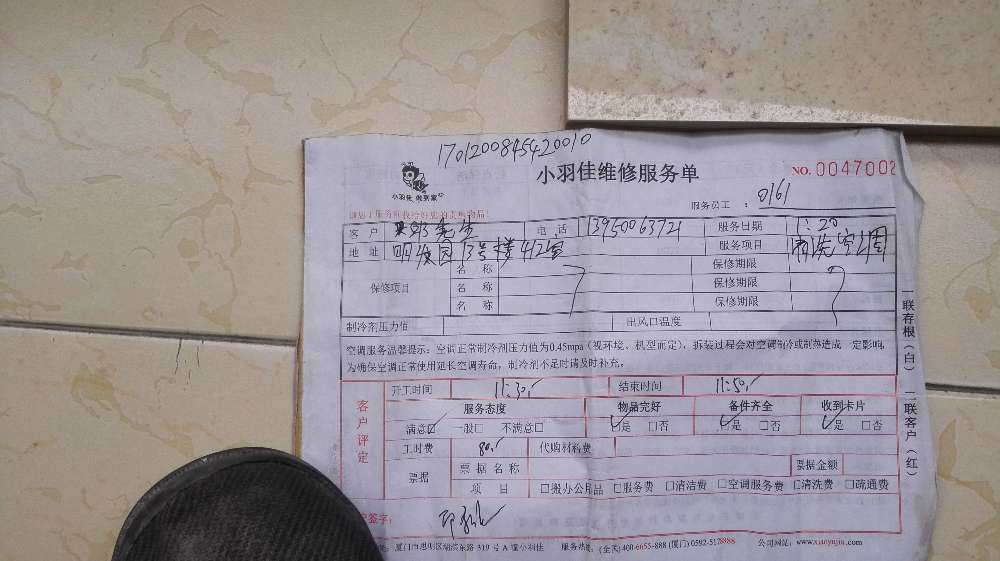 1701200845420010
小羽佳维修服务单
NO. 0047002
小羽佳 做到家
服务员工 : 0161
客 户 先生 电 话 13950063721 服务日期 1:20
地 址 明发园13号楼412室 服务项目 清洗空调
保修项目
名 称 保修期限
名 称 保修期限
名 称 保修期限
制冷剂压力值 出风口温度
空调服务温馨提示:空调正常制冷剂压力值为0.45mpa(视环境、机型而定),拆装过程会对空调制冷或制热造成一定影响
为确保空调正常使用延长空调寿命,制冷剂不足时请及时补充。
客户评定
开工时间 11:30 结束时间 11:50
服务态度 物品完好 备件齐全 收到卡片
满意☑ 一般□ 不满意□ ☑是 □否 ☑是 □否 ☑是 □否
工时费 80 代购材料费
票据 票 据 名 称 票据金额
项 目 □搬办公用品 □服务费 □清洁费 □空调服务费 □清洗费 □疏通费
户签字:
厦门市思明区湖滨东路 319 号 A 服务热线:(全国) 400-6655-888 (厦门) 0592-5178888 公司网站:www.xiaoyujia.com
一联存根(白) 二联客户(红)